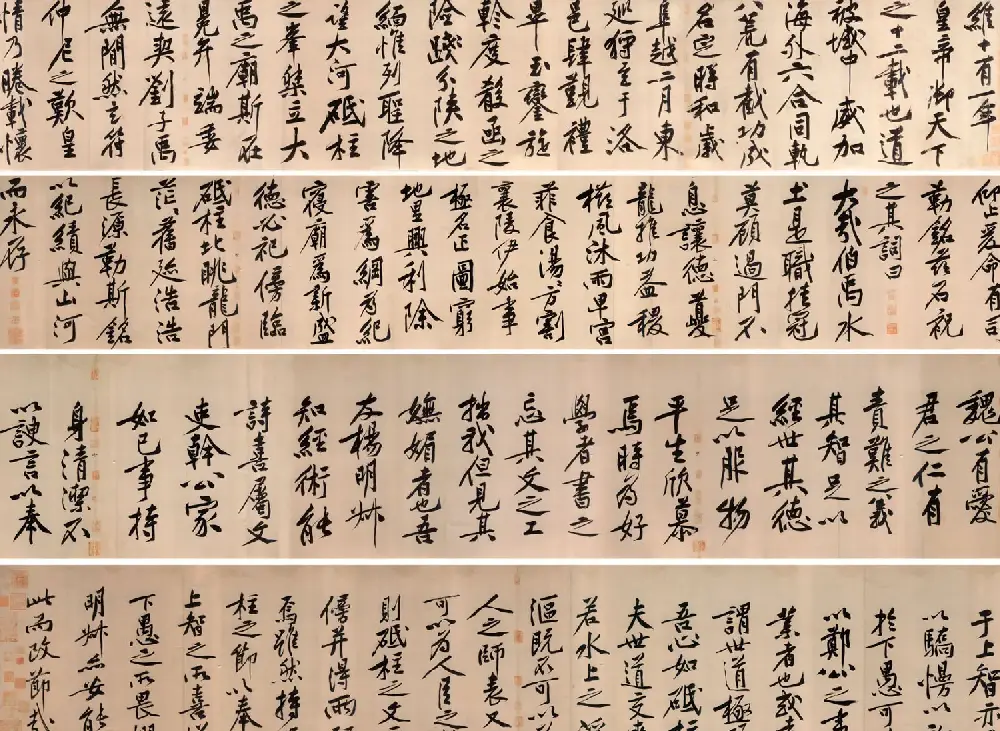 維十有一年
皇帝御天下
之十二載也道
被域中威加
海外六合同軌
八荒有截功成
名定時和歲
阜越二月東
巡狩至于洛
邑肆觀禮
畢玉鑾旋
軫度殽函之
險踐分陝之地
緬惟列聖降
望大河砥柱
之峯桀立大
禹之廟斯在
晃弁端委
遠契劉子禹
無間然之符
仲尼之歎皇
情乃睠載懷
仰止爰命有司
勒銘茲石祝
之其詞曰
大哉伯禹水
土是職挂冠
莫顧過門不
息讓德夔
龍推功益稷
櫛風沐雨卑宮
菲食湯湯方割
襄陵伊始事
極名正圖窮
地里興利除
害爲綱爲紀
寢廟爲新盛
德必祀傍臨
砥柱北眺龍門
茫茫舊迹浩浩
長源勒斯銘
以紀績與山河
而永存
魏公有愛
君之仁有
責難之義
其智足以
經世其德
足以服物
平生欣慕
焉時為好
學者書之
忘其文之工
拙我但見其
嫵媚者也吾
友楊明叔
知經術能
詩喜屬文
吏幹公家
如己事持
身清潔不
以諛言以奉
于上智亦
以驕慢以
於下愚可
以鄭公之事
業者也或
謂世道極
吾心如砥柱
夫世道交
若水上之
漚既不可以
人之師表又
可以為人臣之
則砥柱之文
傍并得兩
焉雖然持
柱之節以奉
上智之所喜
下愚之所畏
明叔亦安能
此而改節哉